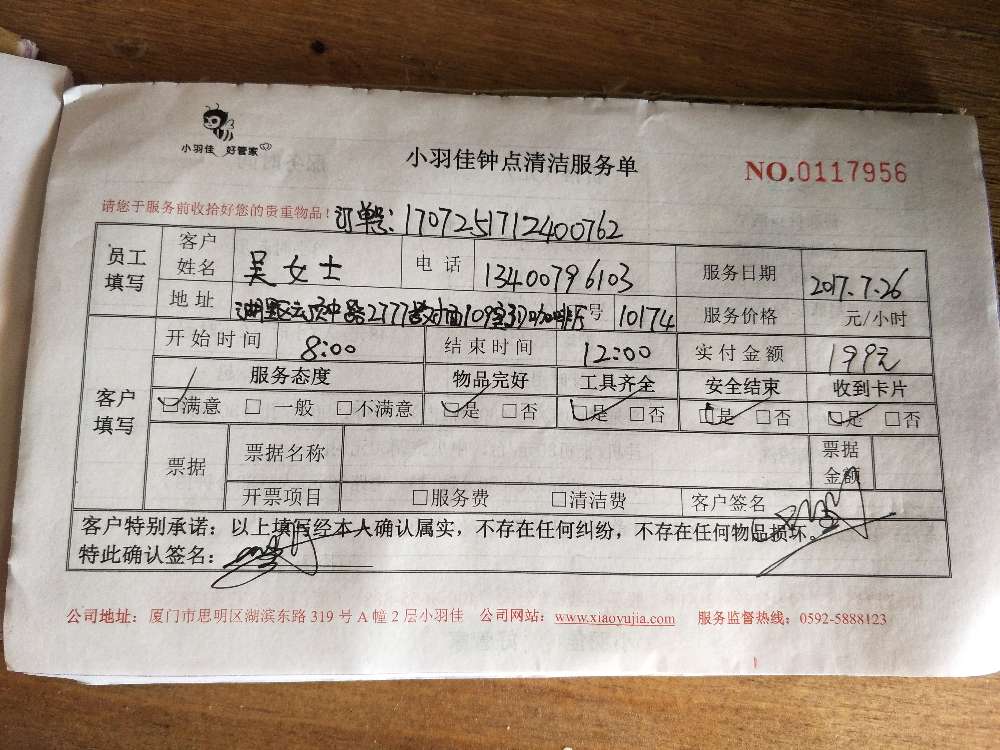 小羽佳 好管家
小羽佳钟点清洁服务单
NO.0117956
请您于服务前收拾好您的贵重物品!
订单号:1707251712400762
员工填写 客户姓名 吴女士 电话 13400796103 服务日期 2017.7.26
地址 湖里区云顶中路2777号对面109室 咖啡厅 号 10174 服务价格 元/小时
客户填写 开始时间 8:00 结束时间 12:00 实付金额 199元
服务态度 物品完好 工具齐全 安全结束 收到卡片
☑满意 □ 一般 □不满意 ☑是 □否 ☑是 □否 ☑是 □否 ☑是 □否
票据 票据名称 票据金额
开票项目 □服务费 □清洁费 客户签名
客户特别承诺:以上填写经本人确认属实,不存在任何纠纷,不存在任何物品损坏。
特此确认签名:
公司地址:厦门市思明区湖滨东路 319 号 A 幢 2 层小羽佳 公司网站:www.xiaoyujia.com 服务监督热线:0592-5888123